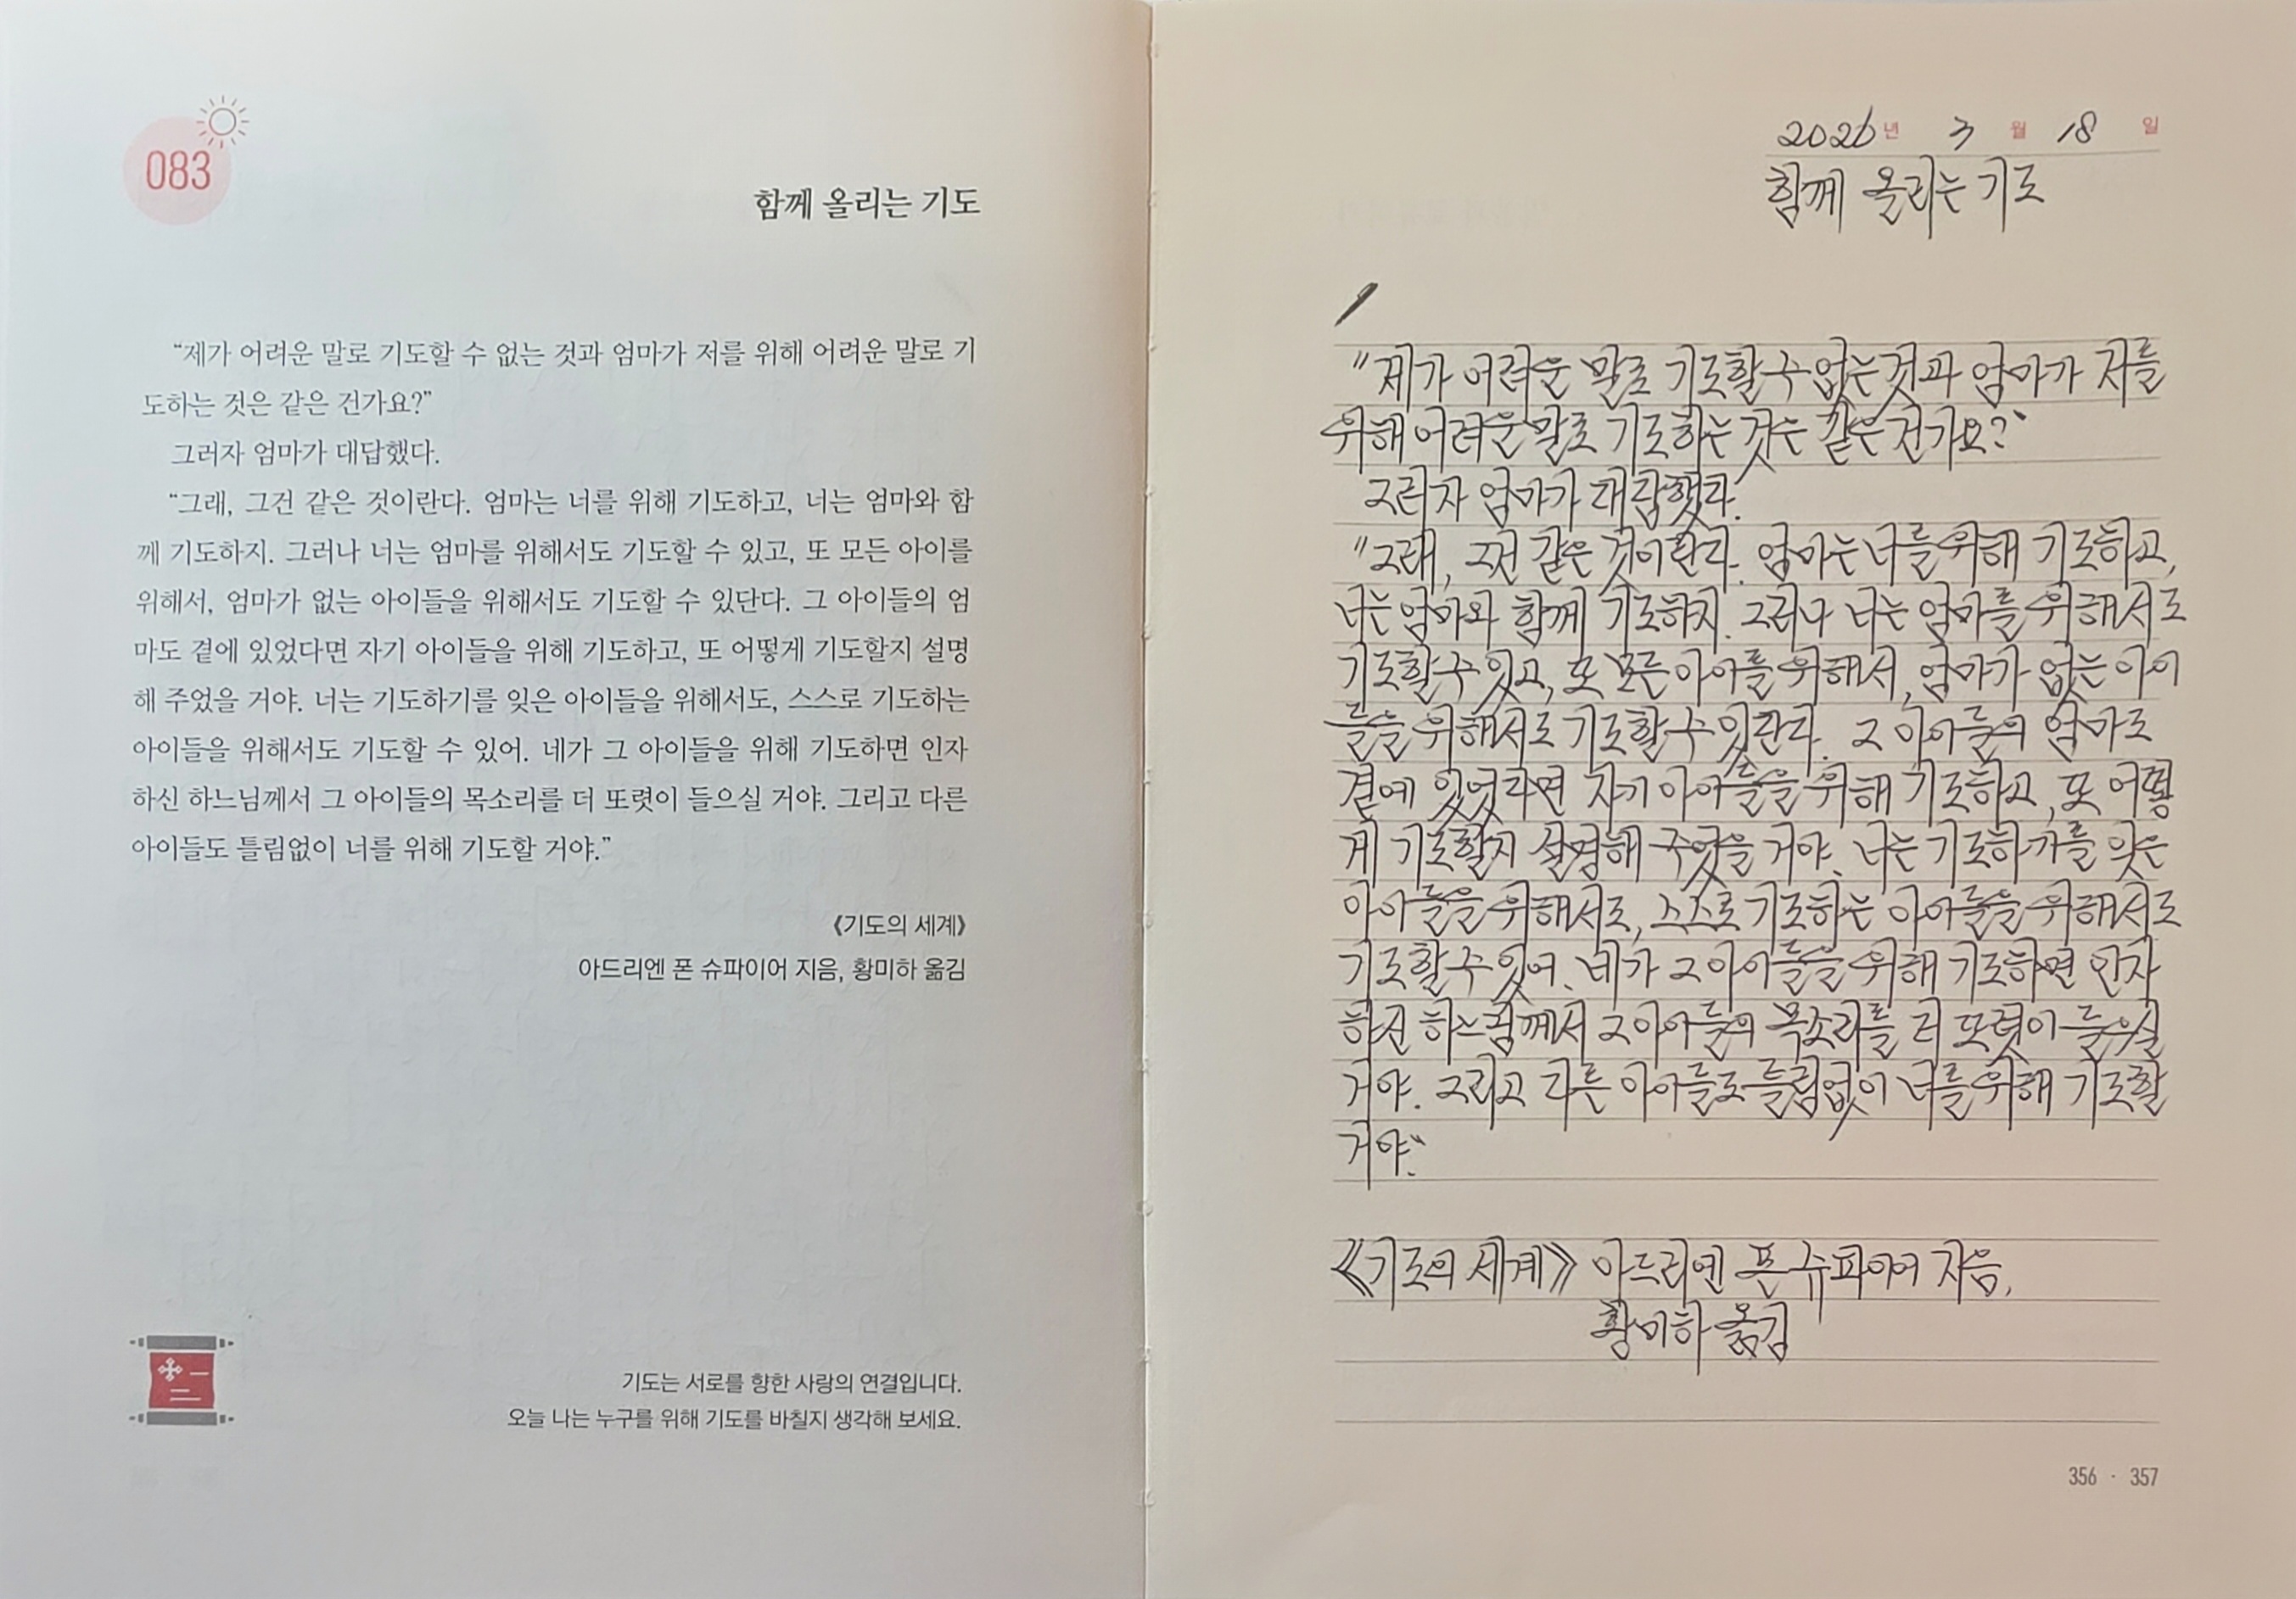 083
함께 올리는 기도
“제가 어려운 말로 기도할 수 없는 것과 엄마가 저를 위해 어려운 말로 기
도하는 것은 같은 건가요?”
그러자 엄마가 대답했다.
“그래, 그건 같은 것이란다. 엄마는 너를 위해 기도하고, 너는 엄마와 함
께 기도하지. 그러나 너는 엄마를 위해서도 기도할 수 있고, 또 모든 아이를
위해서, 엄마가 없는 아이들을 위해서도 기도할 수 있단다. 그 아이들의 엄
마도 곁에 있었다면 자기 아이들을 위해 기도하고, 또 어떻게 기도할지 설명
해 주었을 거야. 너는 기도하기를 잊은 아이들을 위해서도, 스스로 기도하는
아이들을 위해서도 기도할 수 있어. 네가 그 아이들을 위해 기도하면 인자
하신 하느님께서 그 아이들의 목소리를 더 또렷이 들으실 거야. 그리고 다른
아이들도 틀림없이 너를 위해 기도할 거야.”
《기도의 세계》
아드리엔 폰 슈파이어 지음, 황미하 옮김
기도는 서로를 향한 사랑의 연결입니다.
오늘 나는 누구를 위해 기도를 바칠지 생각해 보세요.
2026년 3월 18일
함께 올리는 기도
"제가 어려운 말로 기도할 수 없는 것과 엄마가 저를
위해 어려운 말로 기도하는 것은 같은 건가요?"
그러자 엄마가 대답했다.
"그래, 그건 같은 것이란다. 엄마는 너를 위해 기도하고,
너는 엄마와 함께 기도하지. 그러나 너는 엄마를 위해서도
기도할 수 있고, 또 모든 아이를 위해서, 엄마가 없는 아이
들을 위해서도 기도할 수 있단다. 그 아이들의 엄마도
곁에 있었다면 자기 아이들을 위해 기도하고, 또 어떻
게 기도할지 설명해 주었을 거야. 너는 기도하기를 잊은
아이들을 위해서도, 스스로 기도하는 아이들을 위해서도
기도할 수 있어. 네가 그 아이들을 위해 기도하면 인자
하신 하느님께서 그 아이들의 목소리를 더 또렷이 들으실
거야. 그리고 다른 아이들도 틀림없이 너를 위해 기도할
거야."
《기도의 세계》 아드리엔 폰 슈파이어 지음,
황미하 옮김
356 · 357